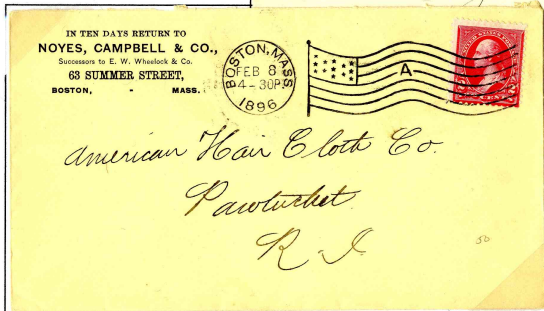 IN TEN DAYS RETURN TO
NOYES, CAMPBELL & CO.,
Successors to E. W. Wheelock & Co.
63 SUMMER STREET,
BOSTON, - MASS.
BOSTON, MASS.
FEB 8
4-30P
1896
A
American Hair Cloth Co.
Pawtucket
R. I.
50